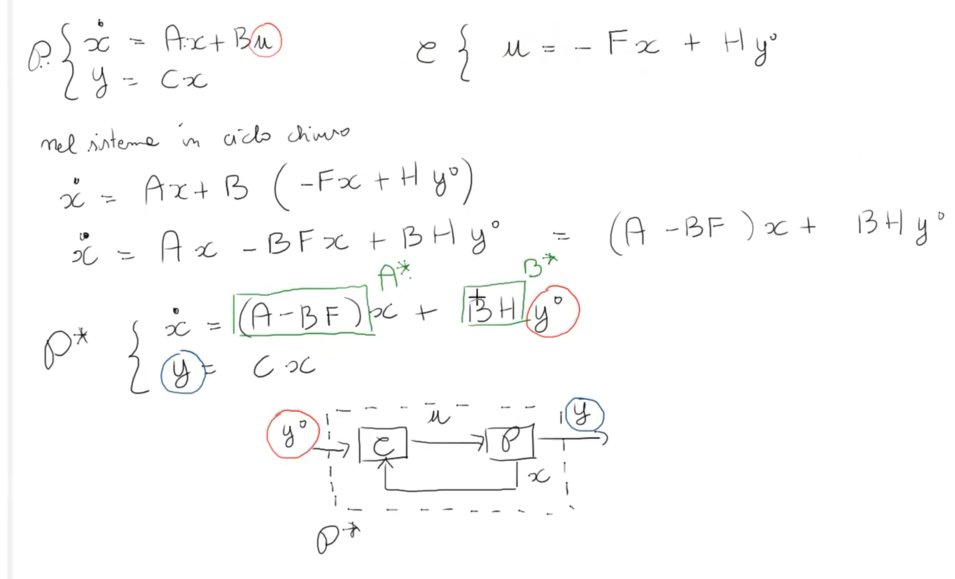 P { ẋ = Ax + Bu
y = Cx
C { u = - Fx + H y°
nel sistema in ciclo chiuso
ẋ = Ax + B ( -Fx + H y° )
ẋ = A x - BFx + BH y° = (A - BF ) x + BH y°
A* B*
P* { ẋ = (A - BF) x + BH y°
y = C x
u
y° C P y
x
P*